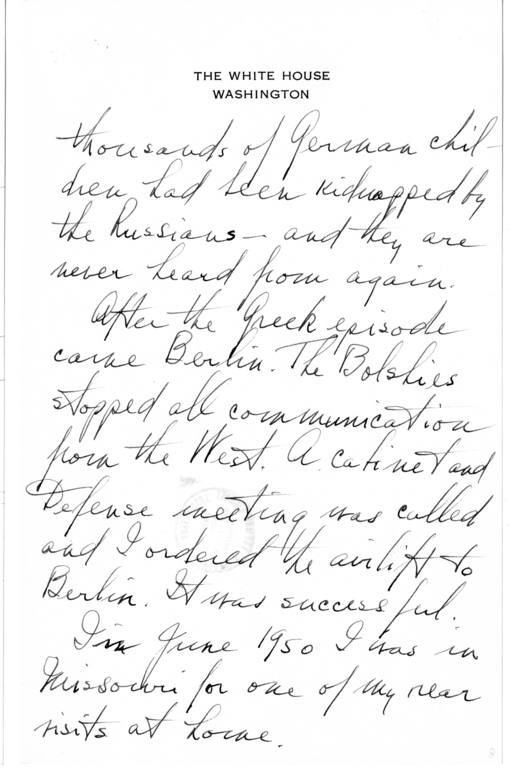 THE WHITE HOUSE
WASHINGTON
thousands of German chil-
dren had been kidnapped by
the Russians — and they are
never heard from again.
After the Greek episode
came Berlin. The Bolshies
stopped all communication
from the West. A cabinet and
Defense meeting was called
and I ordered the airlift to
Berlin. It was successful.
In June 1950 I was in
Missouri for one of my rear
visits at home.